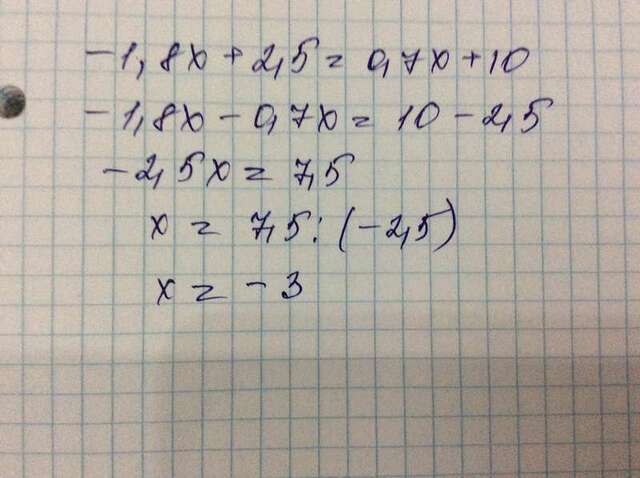 -1,8x + 2,5 = 0,7x + 10
-1,8x - 0,7x = 10 - 2,5
-2,5x = 7,5
x = 7,5 : (-2,5)
x = -3